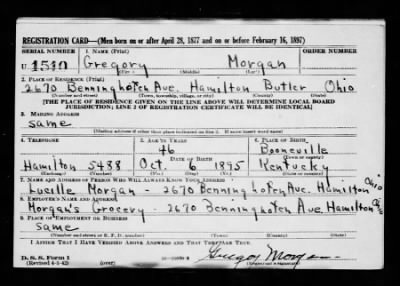 REGISTRATION CARD—(Men born on or after April 28, 1877 and on or before February 16, 1897)
SERIAL NUMBER 1. NAME (Print) ORDER NUMBER
U 1540 Gregory Morgan
(First) (Middle) (Last)
2. PLACE OF RESIDENCE (Print)
2670 Benninghofen Ave. Hamilton Butler Ohio
(Number and street) (Town, township, village, or city) (County) (State)
[THE PLACE OF RESIDENCE GIVEN ON THE LINE ABOVE WILL DETERMINE LOCAL BOARD
JURISDICTION; LINE 2 OF REGISTRATION CERTIFICATE WILL BE IDENTICAL]
3. MAILING ADDRESS
same
[Mailing address if other than place indicated on line 2. If same insert word same]
4. TELEPHONE 5. AGE IN YEARS 6. PLACE OF BIRTH
46 Booneville
DATE OF BIRTH (Town or county)
Hamilton 5488 Oct. 1895 Kentucky
(Exchange) (Number) (Mo.) (Day) (Yr.) (State or country)
7. NAME AND ADDRESS OF PERSON WHO WILL ALWAYS KNOW YOUR ADDRESS
Lucille Morgan - 2670 Benninghofen Ave. Hamilton Ohio
8. EMPLOYER'S NAME AND ADDRESS
Morgan's Grocery - 2670 Benninghofen Ave. Hamilton Ohio
9. PLACE OF EMPLOYMENT OR BUSINESS
same
(Number and street or R. F. D. number) (Town) (County) (State)
I AFFIRM THAT I HAVE VERIFIED ABOVE ANSWERS AND THAT THEY ARE TRUE.
D. S. S. Form 1
(Revised 4-1-42) (over) Gregory Morgan